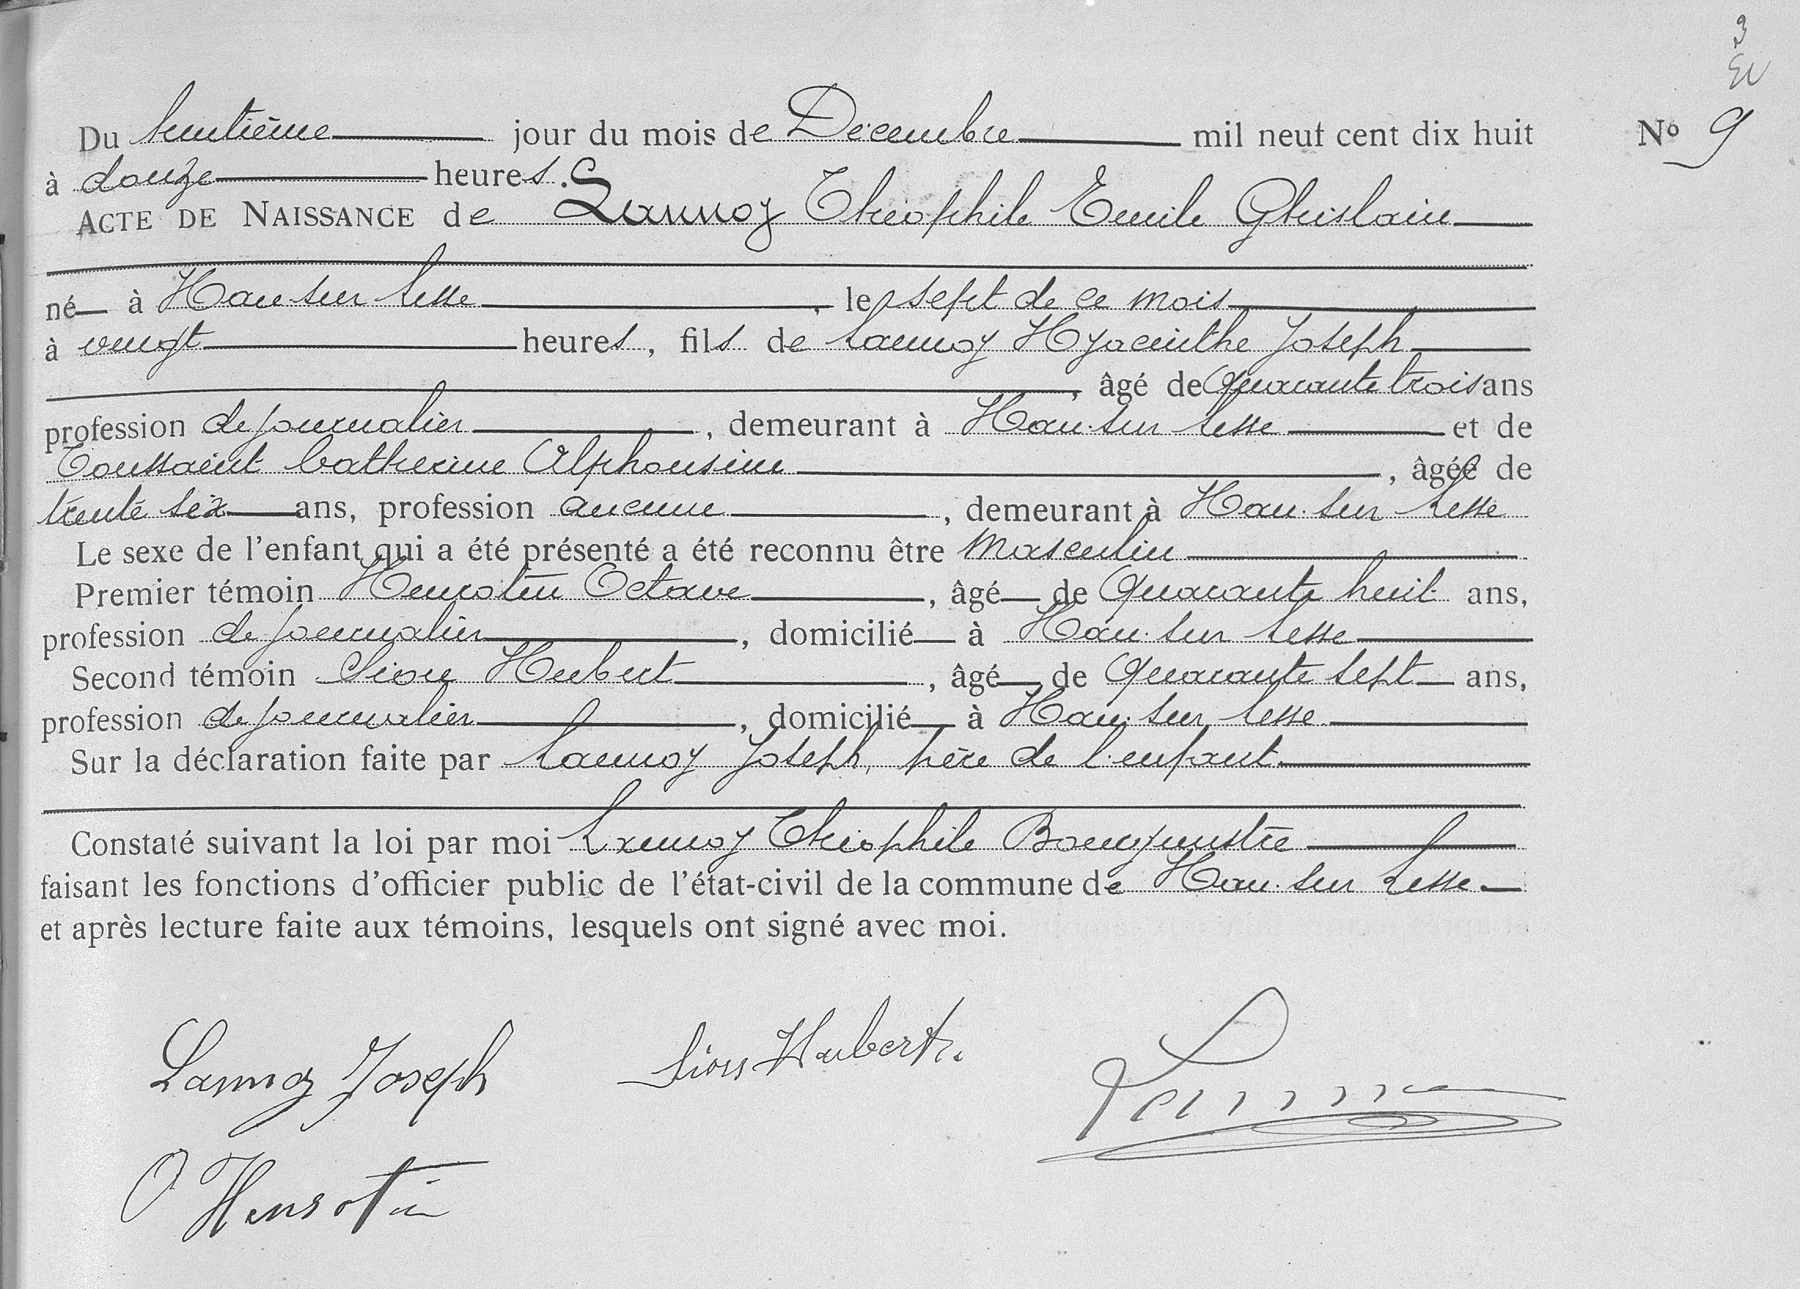 Du huitième jour du mois de Décembre mil neuf cent dix huit Nº 9
à douze heures.
ACTE DE NAISSANCE de Lannoy Théophile Emile Ghislain
né à Han sur Lesse, le sept de ce mois
à vingt heures, fils de Lannoy Hyacinthe Joseph
, âgé de quarante trois ans
profession de journalier, demeurant à Han sur Lesse et de
Toussaint Catherine Alphonsine, âgée de
trente six ans, profession aucune, demeurant à Han sur Lesse
Le sexe de l'enfant qui a été présenté a été reconnu être masculin
Premier témoin Henrotin Octave, âgé de quarante huit ans,
profession de journalier, domicilié à Han sur Lesse
Second témoin Hubert, âgé de quarante sept ans,
profession de journalier, domicilié à Han sur Lesse
Sur la déclaration faite par Lannoy Joseph, père de l'enfant
Constaté suivant la loi par moi Lannoy Théophile Bourgmestre
faisant les fonctions d'officier public de l'état-civil de la commune de Han sur Lesse
et après lecture faite aux témoins, lesquels ont signé avec moi.
Lannoy Joseph Hubert
O Henrotin